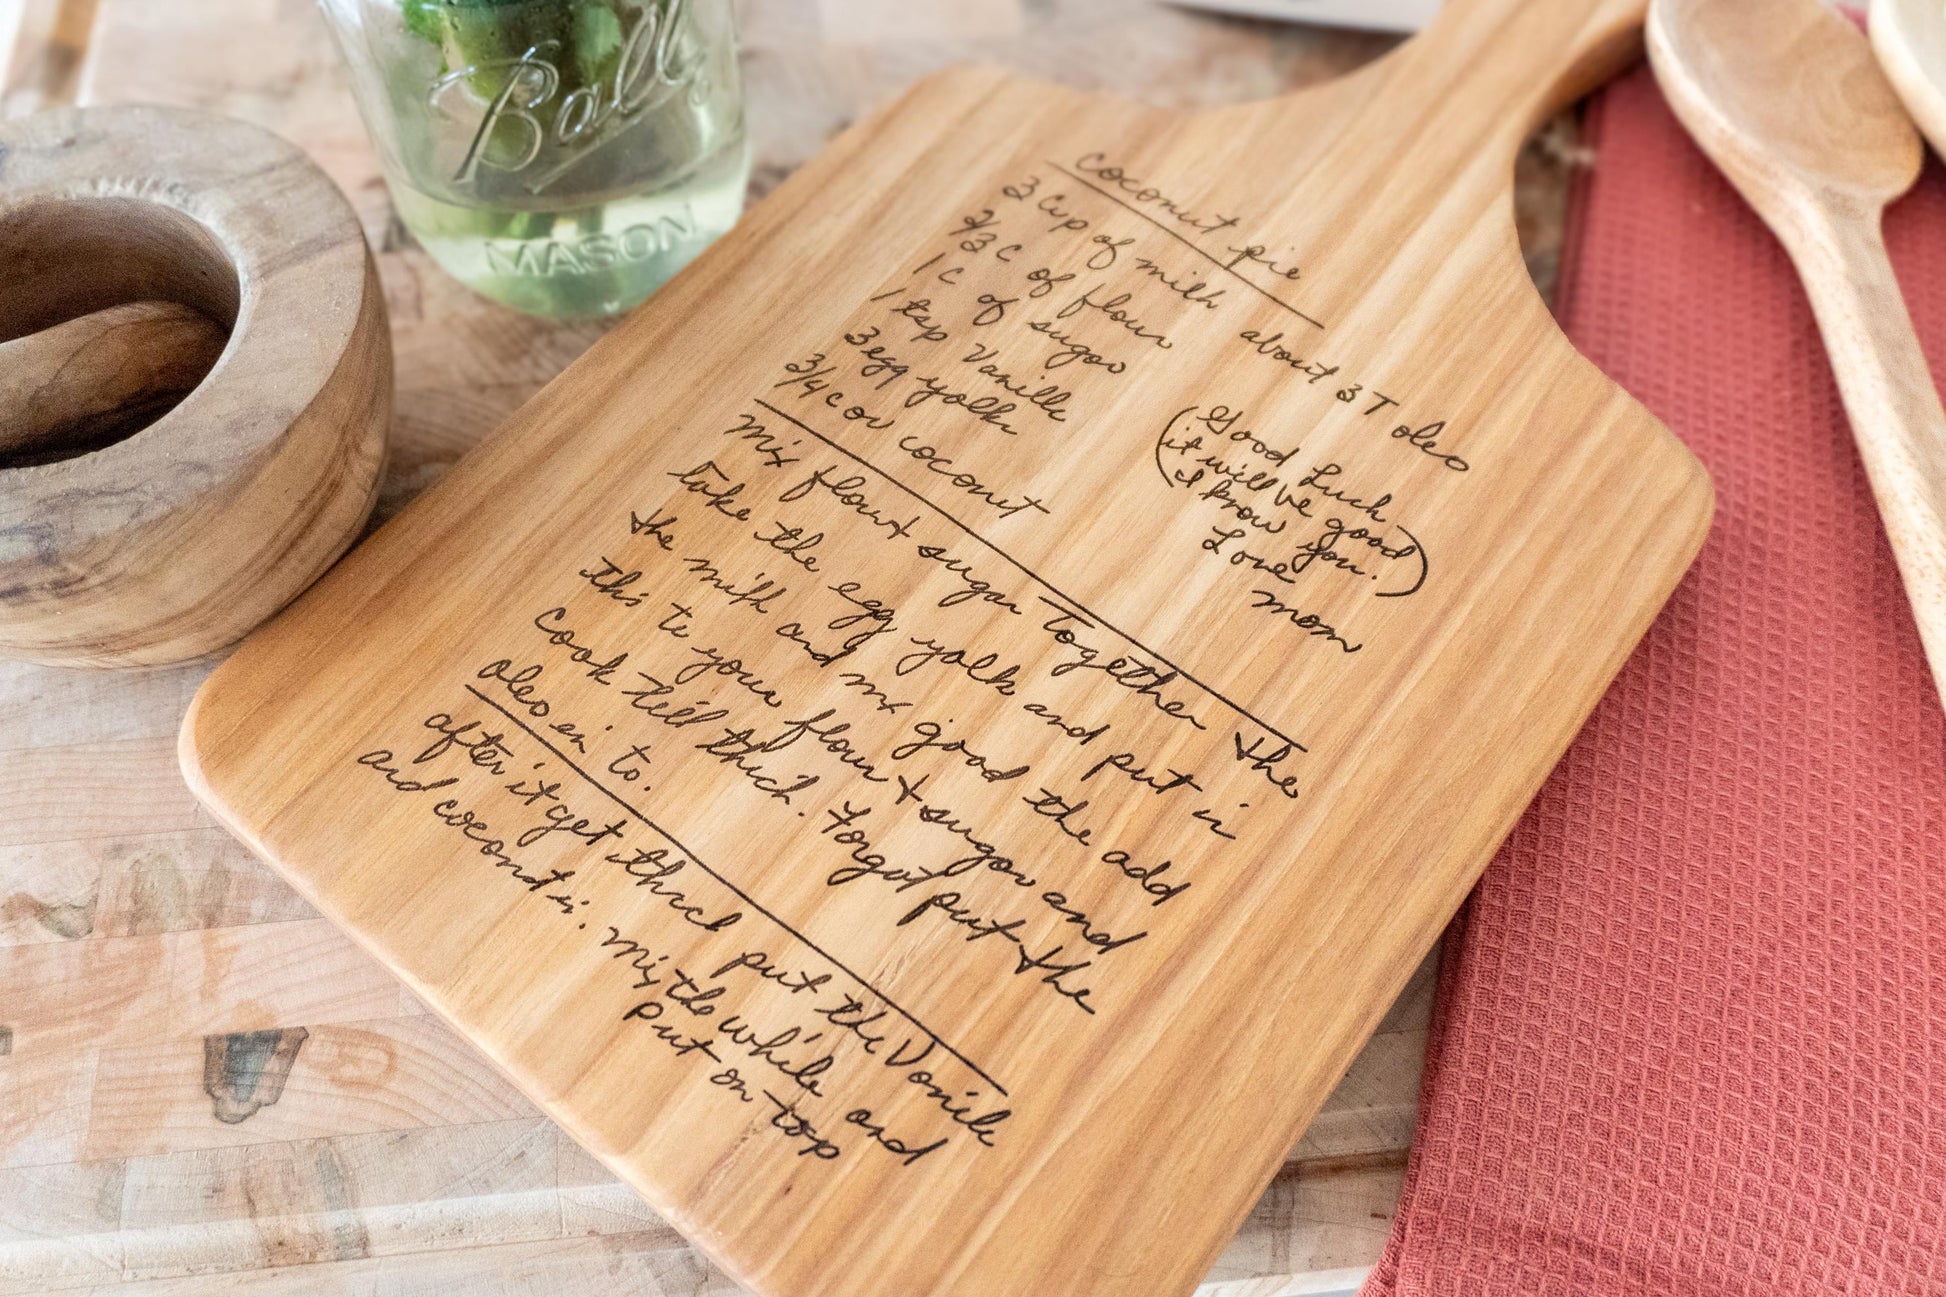 Ball
MASON
Coconut pie
3 Cup of milk about 3 T oleo
2/3 c of flour
1 c of sugar
1 tsp Vanilla
3 egg yolks
3/4 c or coconut
(Good Luck
it will be good
I know you.)
Love
mom
Mix flour + sugar together the
take the egg yolk and put in
the milk and mix good the add
this to your flour + sugar and
Cook till thick. Forgot put the
oleo in to.
after it get thick put the Vanilla
and coconut in. Mix the while and
put on top